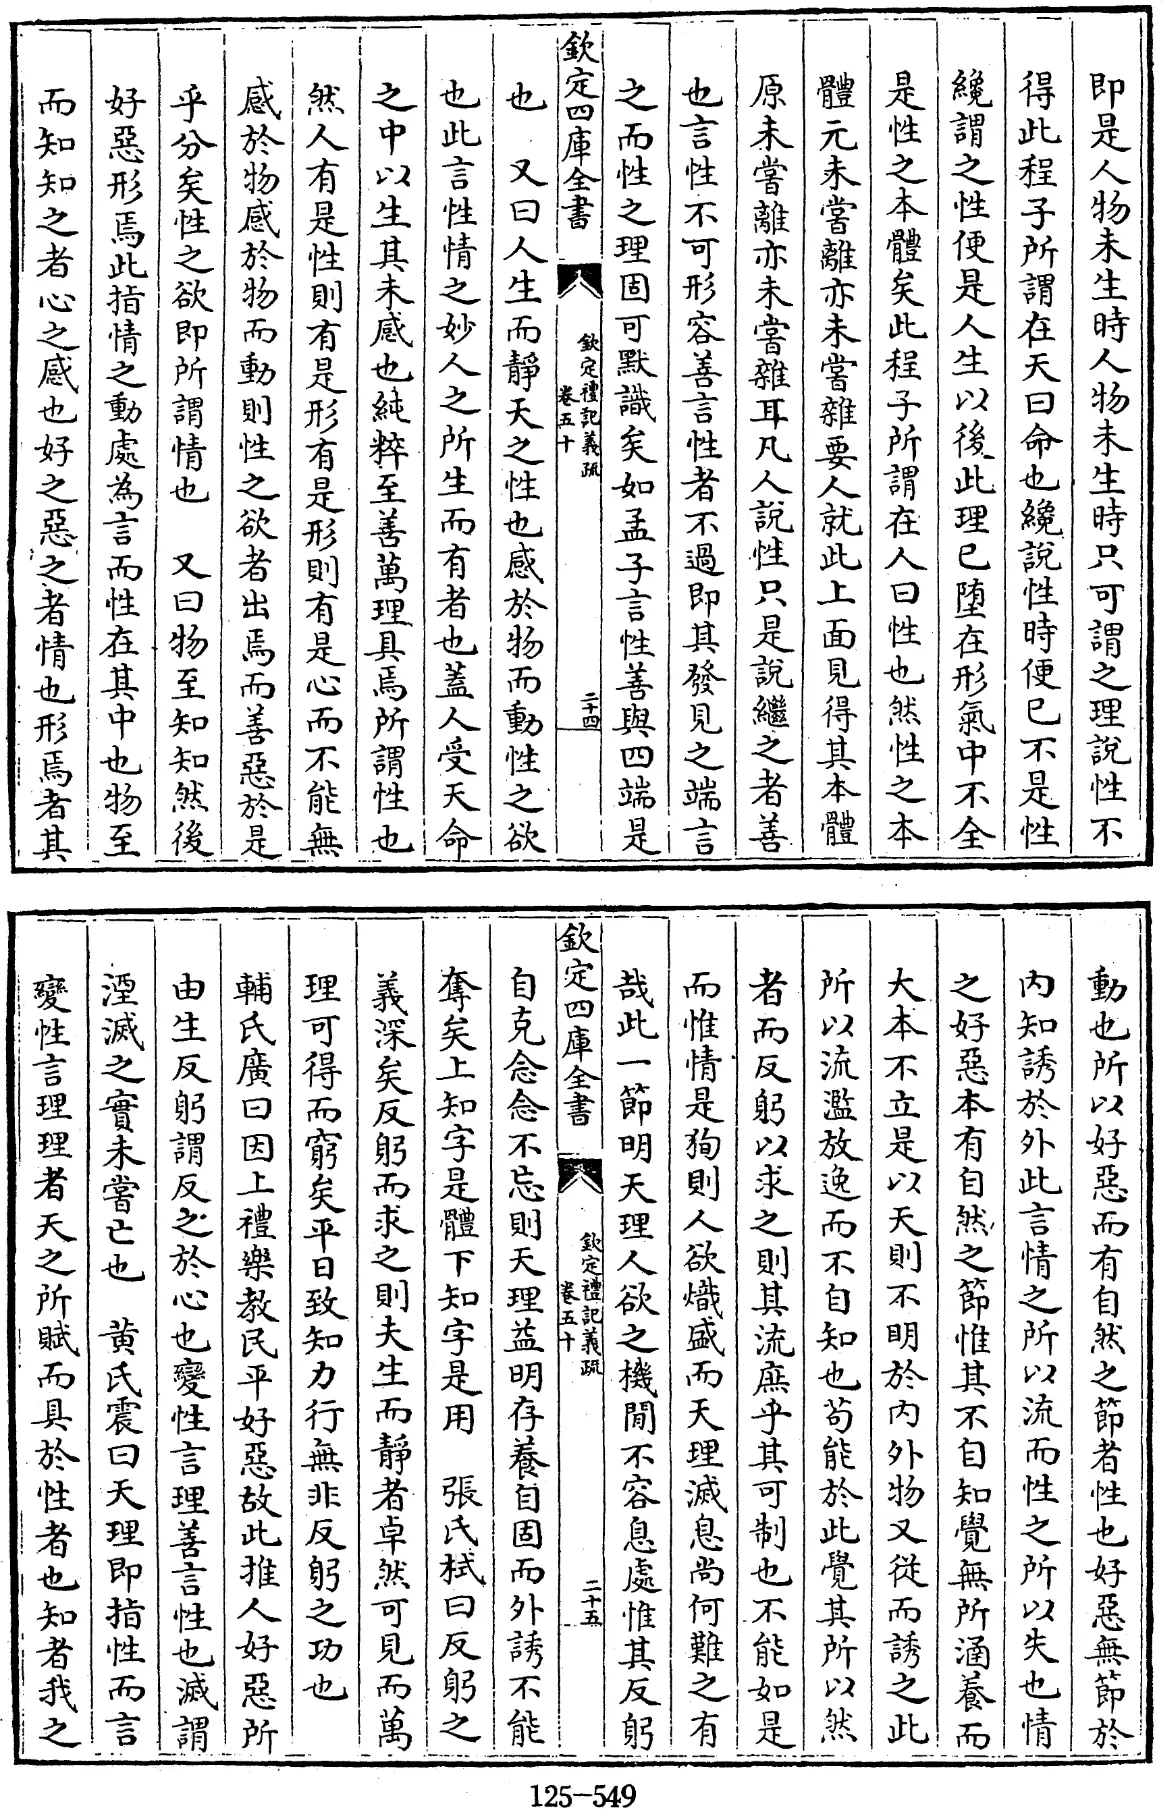 即是人物未生時人物未生時只可謂之理說性不
得此程子所謂在天曰命也纔說性時便已不是性
纔謂之性便是人生以後此理已墮在形氣中不全
是性之本體矣此程子所謂在人曰性也然性之本
體元未嘗離亦未嘗雜要人就此上面見得其本體
原未嘗離亦未嘗雜耳凡人說性只是說繼之者善
也言性不可形容善言性者不過即其發見之端言
之而性之理固可默識矣如孟子言性善與四端是
欽定四庫全書
欽定禮記義疏
卷五十
二十四
也 又曰人生而靜天之性也感於物而動性之欲
也此言性情之妙人之所生而有者也蓋人受天命
之中以生其未感也純粹至善萬理具焉所謂性也
然人有是性則有是形有是形則有是心而不能無
感於物感於物而動則性之欲者出焉而善惡於是
乎分矣性之欲即所謂情也 又曰物至知知然後
好惡形焉此指情之動處為言而性在其中也物至
而知知之者心之感也好之惡之者情也形焉者其
動也所以好惡而有自然之節者性也好惡無節於
內知誘於外此言情之所以流而性之所以失也情
之好惡本有自然之節惟其不自知覺無所涵養而
大本不立是以天則不明於內外物又從而誘之此
所以流濫放逸而不自知也茍能於此覺其所以然
者而反躬以求之則其流庶乎其可制也不能如是
而惟情是狥則人欲熾盛而天理滅息尚何難之有
哉此一節明天理人欲之機間不容息處惟其反躬
欽定四庫全書
欽定禮記義疏
卷五十
二十五
自克念念不忘則天理益明存養自固而外誘不能
奪矣上知字是體下知字是用 張氏栻曰反躬之
義深矣反躬而求之則夫生而靜者卓然可見而萬
理可得而窮矣平日致知力行無非反躬之功也
輔氏廣曰因上禮樂教民平好惡故此推人好惡所
由生反躬謂反之於心也變性言理善言性也滅謂
湮滅之實未嘗亡也 黃氏震曰天理即指性而言
變性言理理者天之所賦而具於性者也知者我之
125-549